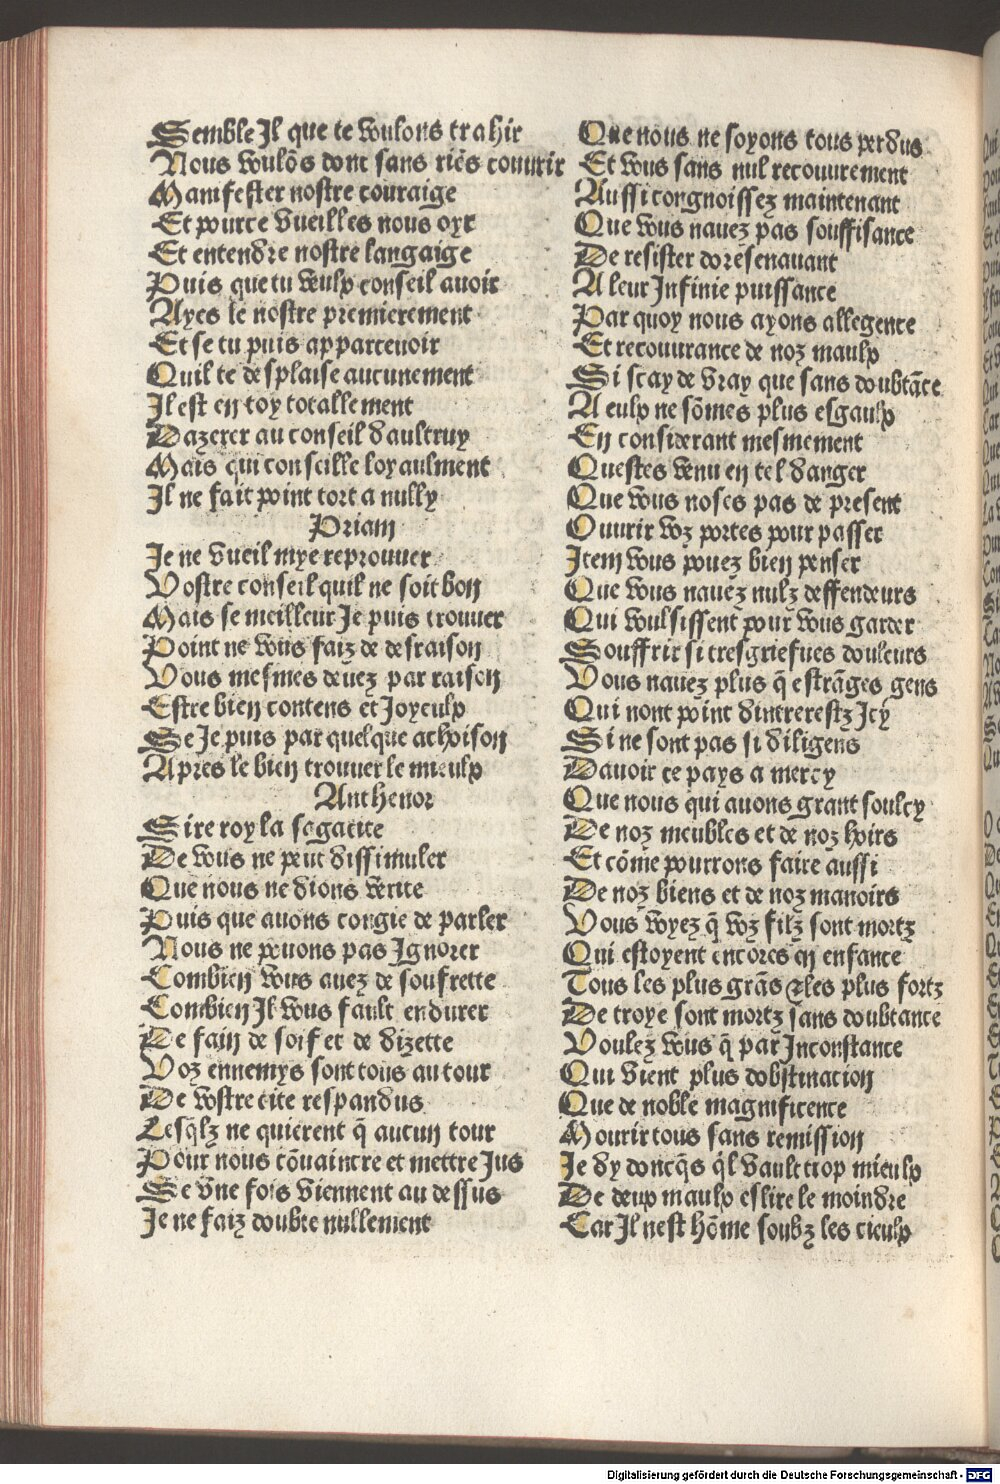 Semble Il que te voulons trahir
Nous voulõs dont sans riẽs couurir
Manifester nostre couraige
Et pource vueilles nous oyr
Et entendre nostre langaige
Puis que tu veulx conseil auoir
Ayes le nostre premierement
Et se tu puis apparceuoir
Quil te desplaise aucunement
Il est en toy totallement
Dazerer au conseil daultruy
Mais qui conseille loyaulment
Il ne fait point tort a nully
Priam
Je ne vueil mye reprouuer
Vostre conseil quil ne soit bon
Mais se meilleur Je puis trouuer
Point ne vous faiz de desraison
Vous mesmes deuez par raison
Estre bien contens et Joyeulx
Se Je puis par quelque achoison
Apres le bien trouuer le mieulx
Anthenor
Sire roy la sagacite
De vous ne peut dissimuler
Que nous ne dions verite
Puis que auons congie de parler
Nous ne pouons pas Ignorer
Combien vous auez de souffrette
Combien Il vous fault endurer
De fain de soif et de dizette
Voz ennemys sont tous autour
De vostre cite respandus
Lesq̃lz ne quierent q̃ aucun tour
Pour nous cõuaincre et mettre Jus
Se vne fois viennent au dessus
Je ne faiz doubte nullement
Que nous ne soyons tous perdus
Et vous sans nul recouurement
Aussi congnoissez maintenant
Que vous nauez pas souffisance
De resister doresenauant
A leur Infinie puissance
Par quoy nous ayons allegence
Et recouurance de noz maulx
Si scay de vray que sans doubtãce
A eulx ne sõmes plus esgaulx
En considerant mesmement
Questes venu en tel danger
Que vous noses pas de present
Ouurir voz portes pour passer
Item vous pouez bien penser
Que vous nauez nulz deffendeurs
Qui voulsissent pour vous garder
Souffrir si tresgriefues douleurs
Vous nauez plus q̃ estrãges gens
Qui nont point dintrerestz Icy
Si ne sont pas si diligens
Dauoir ce pays a mercy
Que nous qui auons grant soulcy
De noz meubles et de noz hoirs
Et cõme pourrons faire aussi
De noz biens et de noz manoirs
Vous voyez q̃ voz filz sont mortz
Qui estoyent encores en enfance
Tous les plus grãs ⁊ les plus fortz
De troye sont mortz sans doubtance
Voulez vous q̃ par Inconstance
Qui vient plus dobstination
Que de noble magnificence
Mourir tous sans remission
Je dy doncq̃s q̃l vault trop mieulx
De deux maulx eslire le moindre
Car Il nest hõme soubz les cieulx
Digitalisierung gefördert durch die Deutsche Forschungsgemeinschaft - DFG